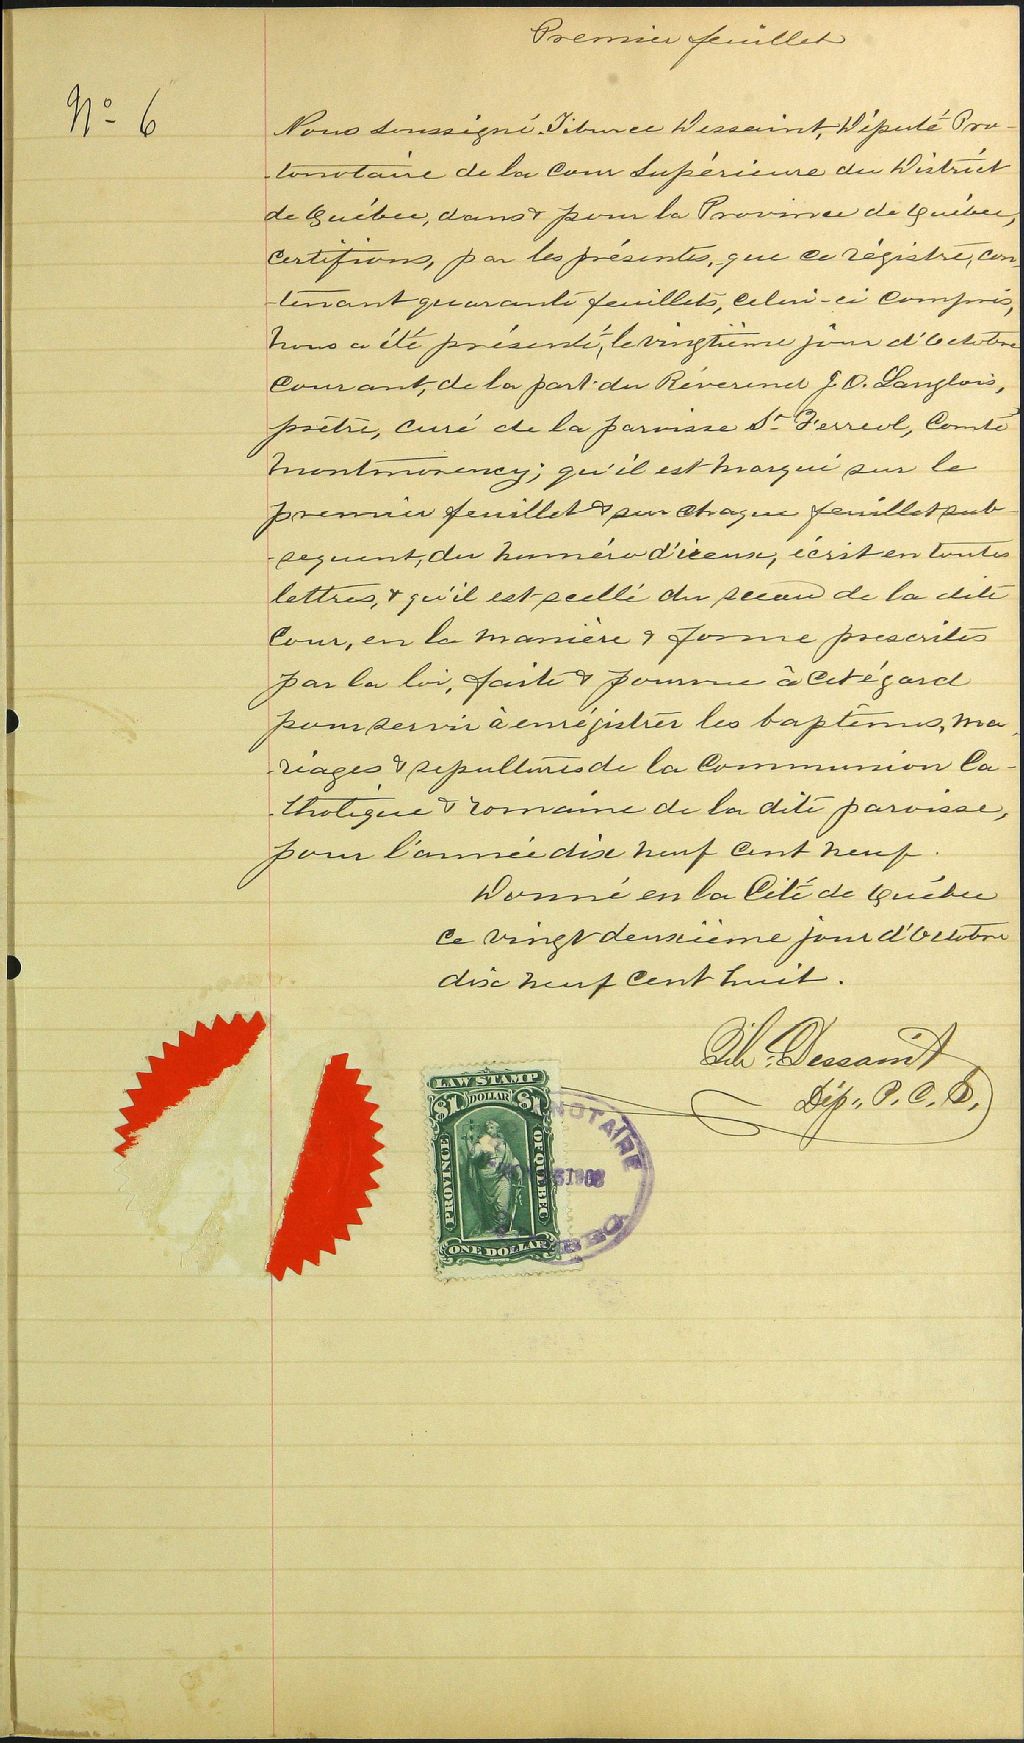 Premier feuillet
No 6
Nous soussigné Tiburce Dessaint, Député Pro-
-tonotaire de la Cour Supérieure du District
de Québec, dans & pour la Province de Québec,
certifions, par les présentes, que ce régistre, con-
-tenant quarante feuillets, celui-ci compris,
nous a été présenté, le vingtième jour d'Octobre
courant, de la part du Révérend J. O. Langlois,
prêtre, curé de la paroisse St Ferreol, Comté
Montmorency; qu'il est marqué sur le
premier feuillet & sur chaque feuillet sub-
-sequent, du numéro d'iceux, écrit en toutes
lettres, & qu'il est scellé du sceau de la dite
Cour, en la manière & forme prescrites
par la loi, faite & pourvue à cet égard
pour servir à enrégistrer les baptêmes, ma-
-riages & sepultures de la Communion Ca-
-tholique & romaine de la dite paroisse,
pour l'année dix neuf cent neuf.
Donné en la Cité de Québec
ce vingt deuxième jour d'Octobre
dix neuf cent huit.
Tib. Dessaint
Dép. P. C. S.
LAW STAMP
$1 DOLLAR $1
PROVINCE OF QUEBEC
ONE DOLLAR
NOTAIRE
1908
BEC